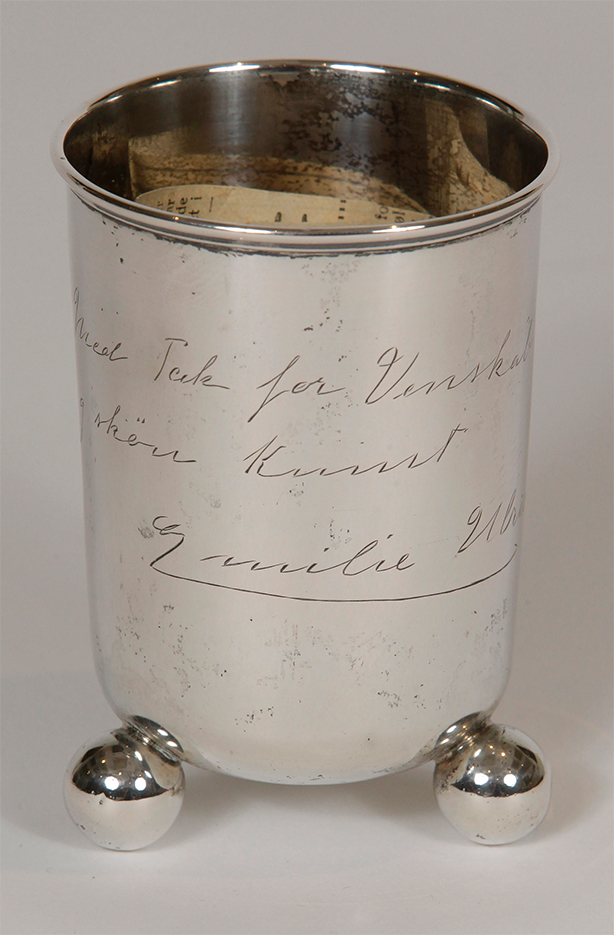 Med Tak for Venskab
og skön Kunst
Emilie